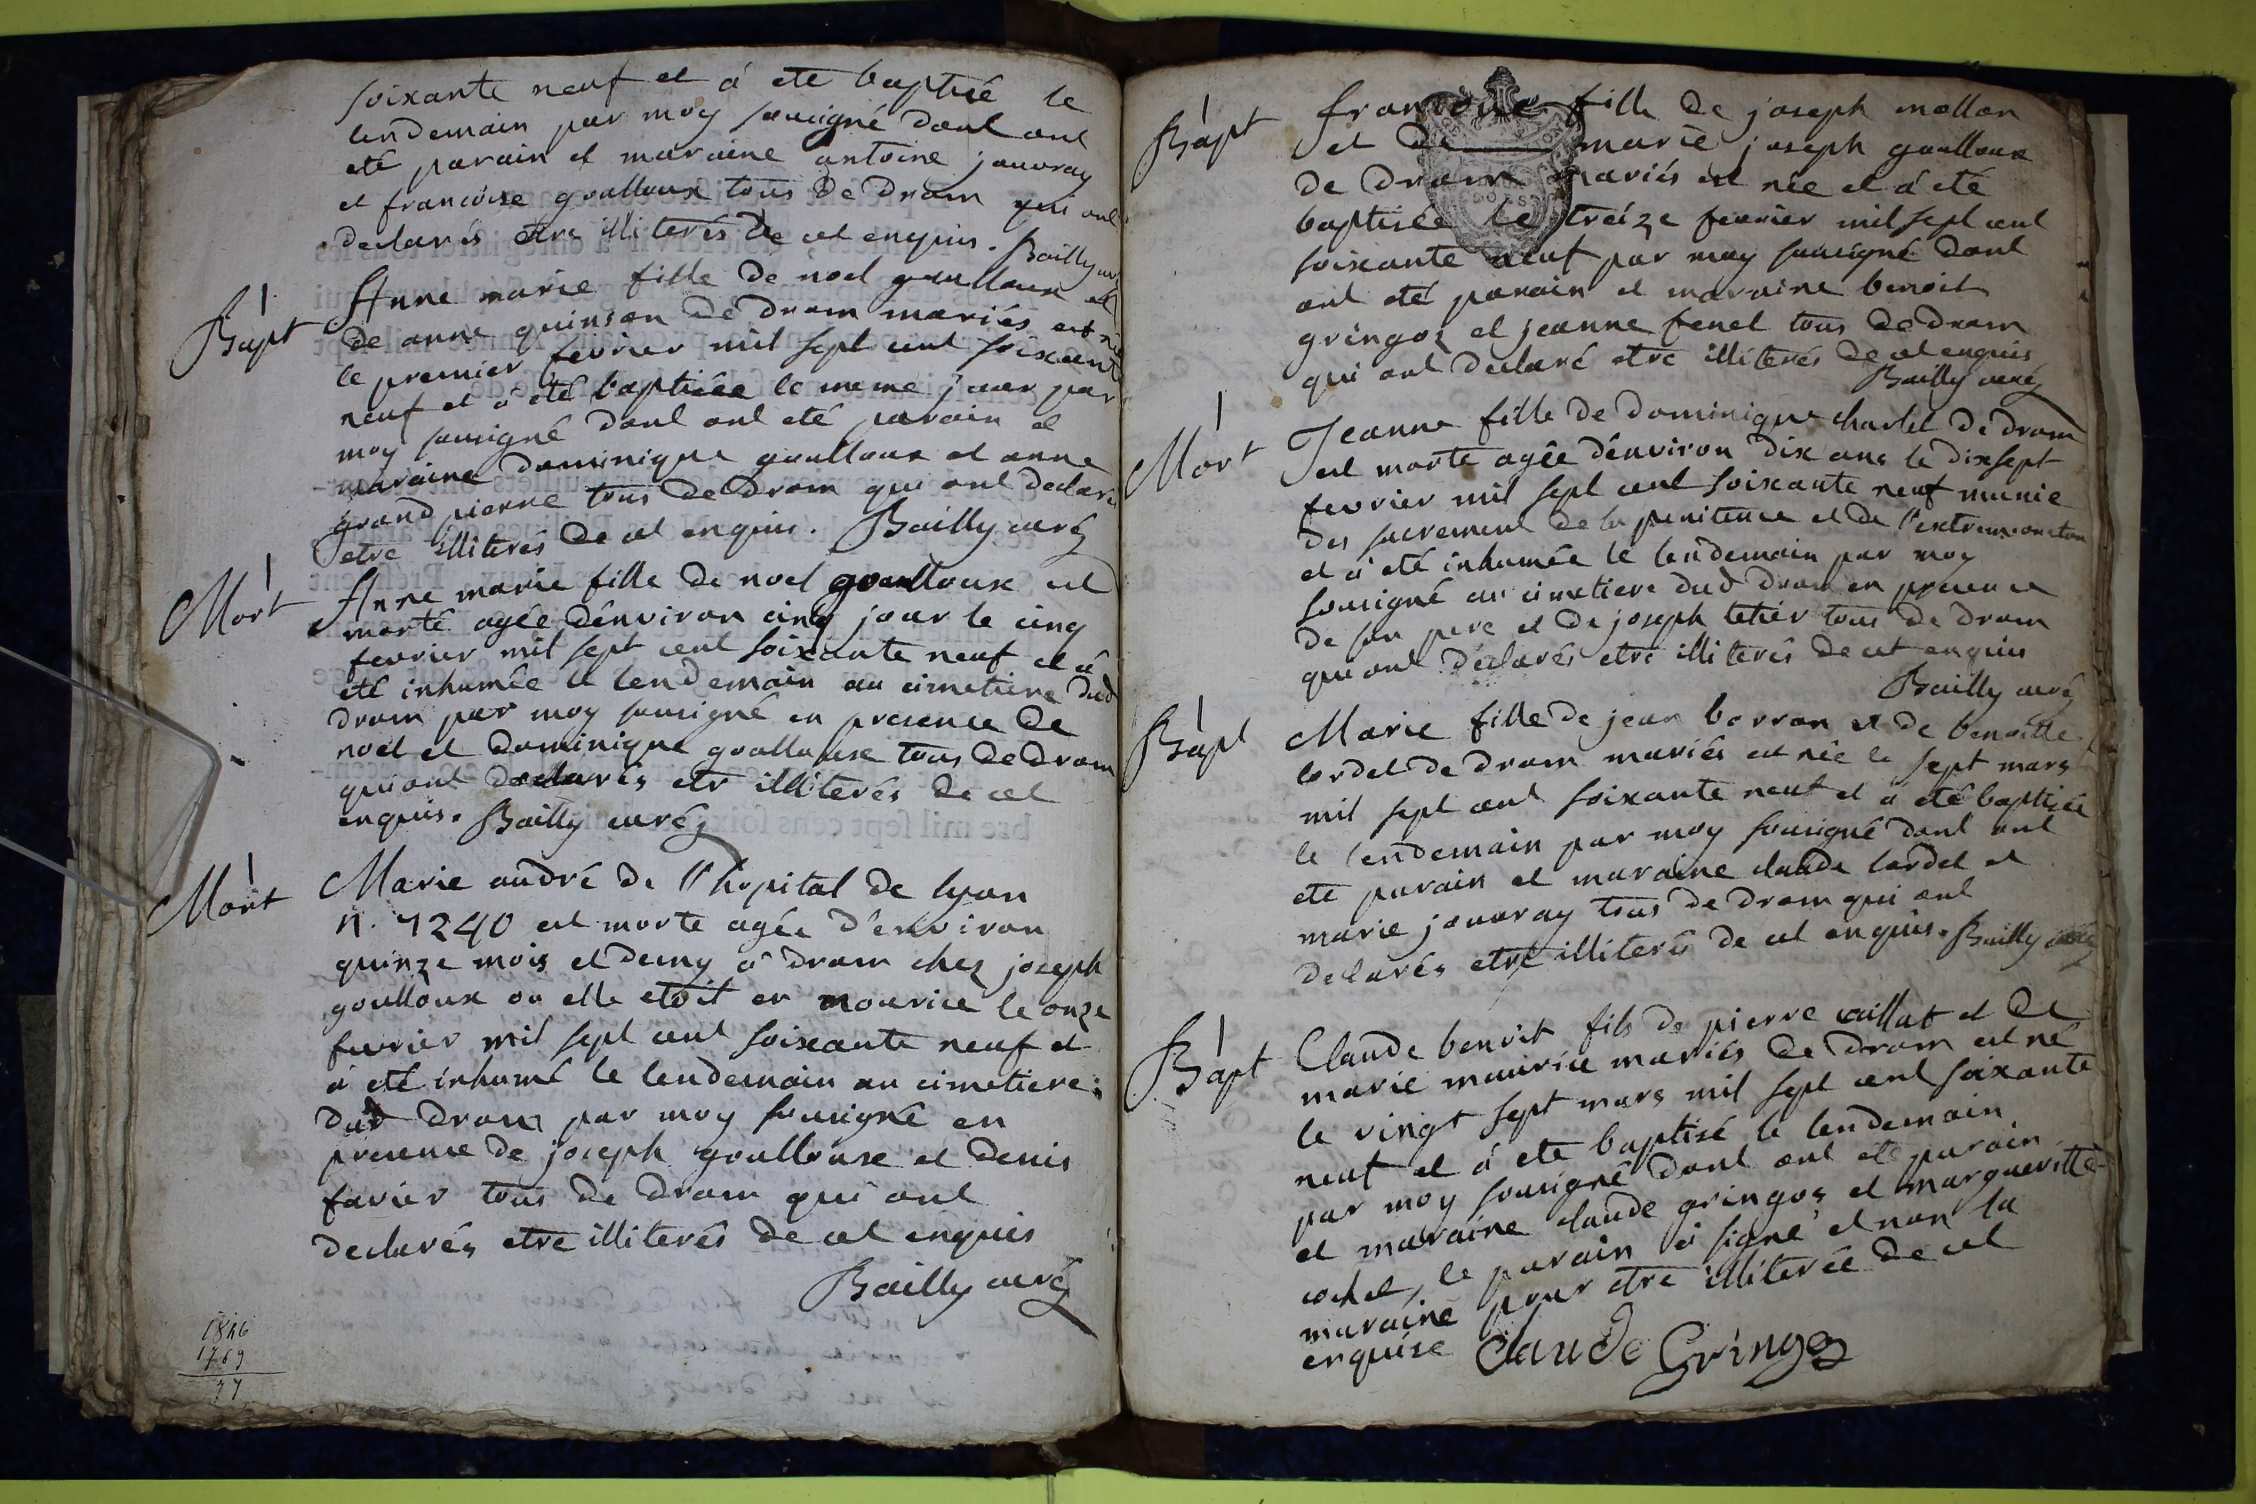 soixante neuf et á eté baptisé le
lendemain par moy sousigné dont ont
eté parain et maraine antoine jouvray
et francoise goulloux tous de Dram qui ont
declarés etre illiterés de cet enquis. Bailly curé
Bapt
Anne marie fille de noel goulloux et
de anne quinson de dram mariés est née
le premier fevrier mil sept cent soixante
neuf et á eté baptisée le meme jour par
moy sousigné dont ont eté parain et
maraine dominique goulloux et anne
grand pierre tous de dram qui ont declaré
etre illiterés de cet enquis. Bailly curéz
Mort
Anne marie fille de noel goulloux est
morte agée d'environ cinq jour le cinq
fevrier mil sept cent soixante neuf et á
eté inhumée le lendemain au cimetiere dud
dram par moy sousigné en presence de
noel et dominique goulloux tous de dram
qui ont declarés etr illiterés de cet
enquis. Bailly curéz
Mort
Marie andré de l'hopital de lyon
n. 7240 est morte agée d'environ
quinze mois et demy á dram chez joseph
goulloux ou elle etoit en nourice le onze
fevrier mil sept cent soixante neuf et
á eté inhumé le lendemain au cimetiere
dud dram par moy sousigné en
presence de joseph goulloux et denis
favier tous de dram qui ont
declarés etre illiterés de cet enquis
Bailly curéz
1846
1769
77
Bapt
francoise fille de joseph mollon
et de marie joseph goulloux
de dram mariés est née et á eté
baptisée le treize fevrier mil sept cent
soixante neuf par moy sousigné dont
ont eté parain et maraine benoit
gringoz et jeanne fenel tous de dram
qui ont declaré etre illiterés de cet enquis
Bailly curéz
Mort
Jeanne fille de dominique charlet de dram
est morte agée d'environ dix ans le dix sept
fevrier mil sept cent soixante neuf munie
des sacrement de la penitence et de l'extremonction
et á eté inhumée le lendemain par moy
sousigné au cimetiere dud dram en presence
de son pere et de joseph letiér tous de dram
qui ont declarés etre illiterés de cet enquis
Bailly curéz
Bapt
Marie fille de jean borron et de benoitte
lordel de dram mariés est née le sept mars
mil sept cent soixante neuf et á eté baptisée
le lendemain par moy sousigné dont ont
eté parain et maraine claude lordel et
marie jouvray tous de dram qui ont
declarés etre illiterés de cet enquis. Bailly curéz
Bapt
Claude benoit fils de pierre vaillat et de
marie maurice mariés de dram est né
le vingt sept mars mil sept cent soixante
neuf et á eté baptisé le lendemain
par moy sousigné dont ont eté parain
et maraine claude gringoz et margueritte
cochet, le parain á signé et non la
maraine pour etre illiterée de cet
enquise Claude Gringoz